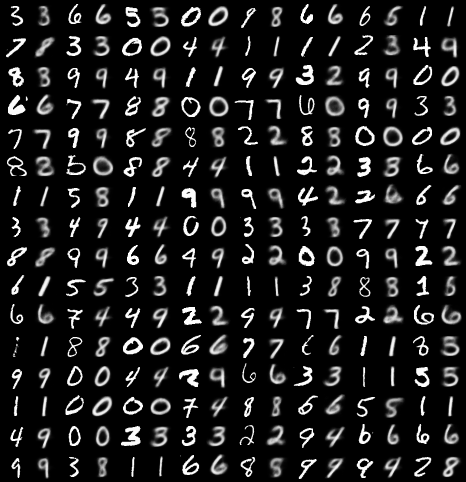 3 3 6 6 5 5 0 0 9 8 6 6 6 6 1 1
7 8 3 3 0 0 4 4 1 1 1 1 2 3 4 9
8 3 9 9 4 9 1 1 9 9 3 2 9 9 0 0
6 6 7 7 8 8 0 0 7 7 6 0 9 9 3 3
7 7 9 9 8 8 8 8 2 2 8 8 0 0 0 0
8 2 5 0 8 8 4 4 1 1 2 2 3 3 6 6
1 1 5 8 1 1 9 9 9 9 4 2 2 6 6 6
3 3 4 9 4 4 0 0 3 3 3 3 7 7 7 7
8 8 9 9 6 6 4 9 2 2 0 0 9 9 2 2
6 1 5 5 3 3 1 1 1 1 3 8 8 8 1 5
6 6 7 4 4 9 2 2 9 9 7 7 2 2 6 6
1 1 8 8 0 0 6 6 7 7 6 6 1 1 3 5
9 9 0 0 4 4 2 9 6 6 3 3 1 1 5 5
1 1 0 0 0 0 7 4 8 8 6 6 5 5 1 1
4 9 0 0 3 3 3 3 2 2 9 4 6 6 6 6
9 9 3 8 1 1 6 6 8 8 9 9 9 4 2 8